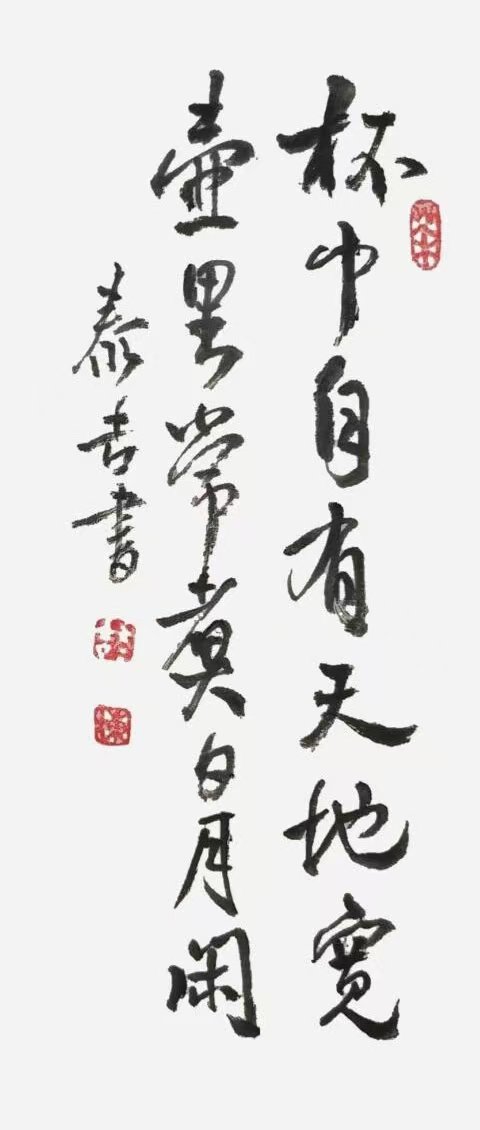 杯中自有天地宽
壶里常煮日月闲
泰吉書